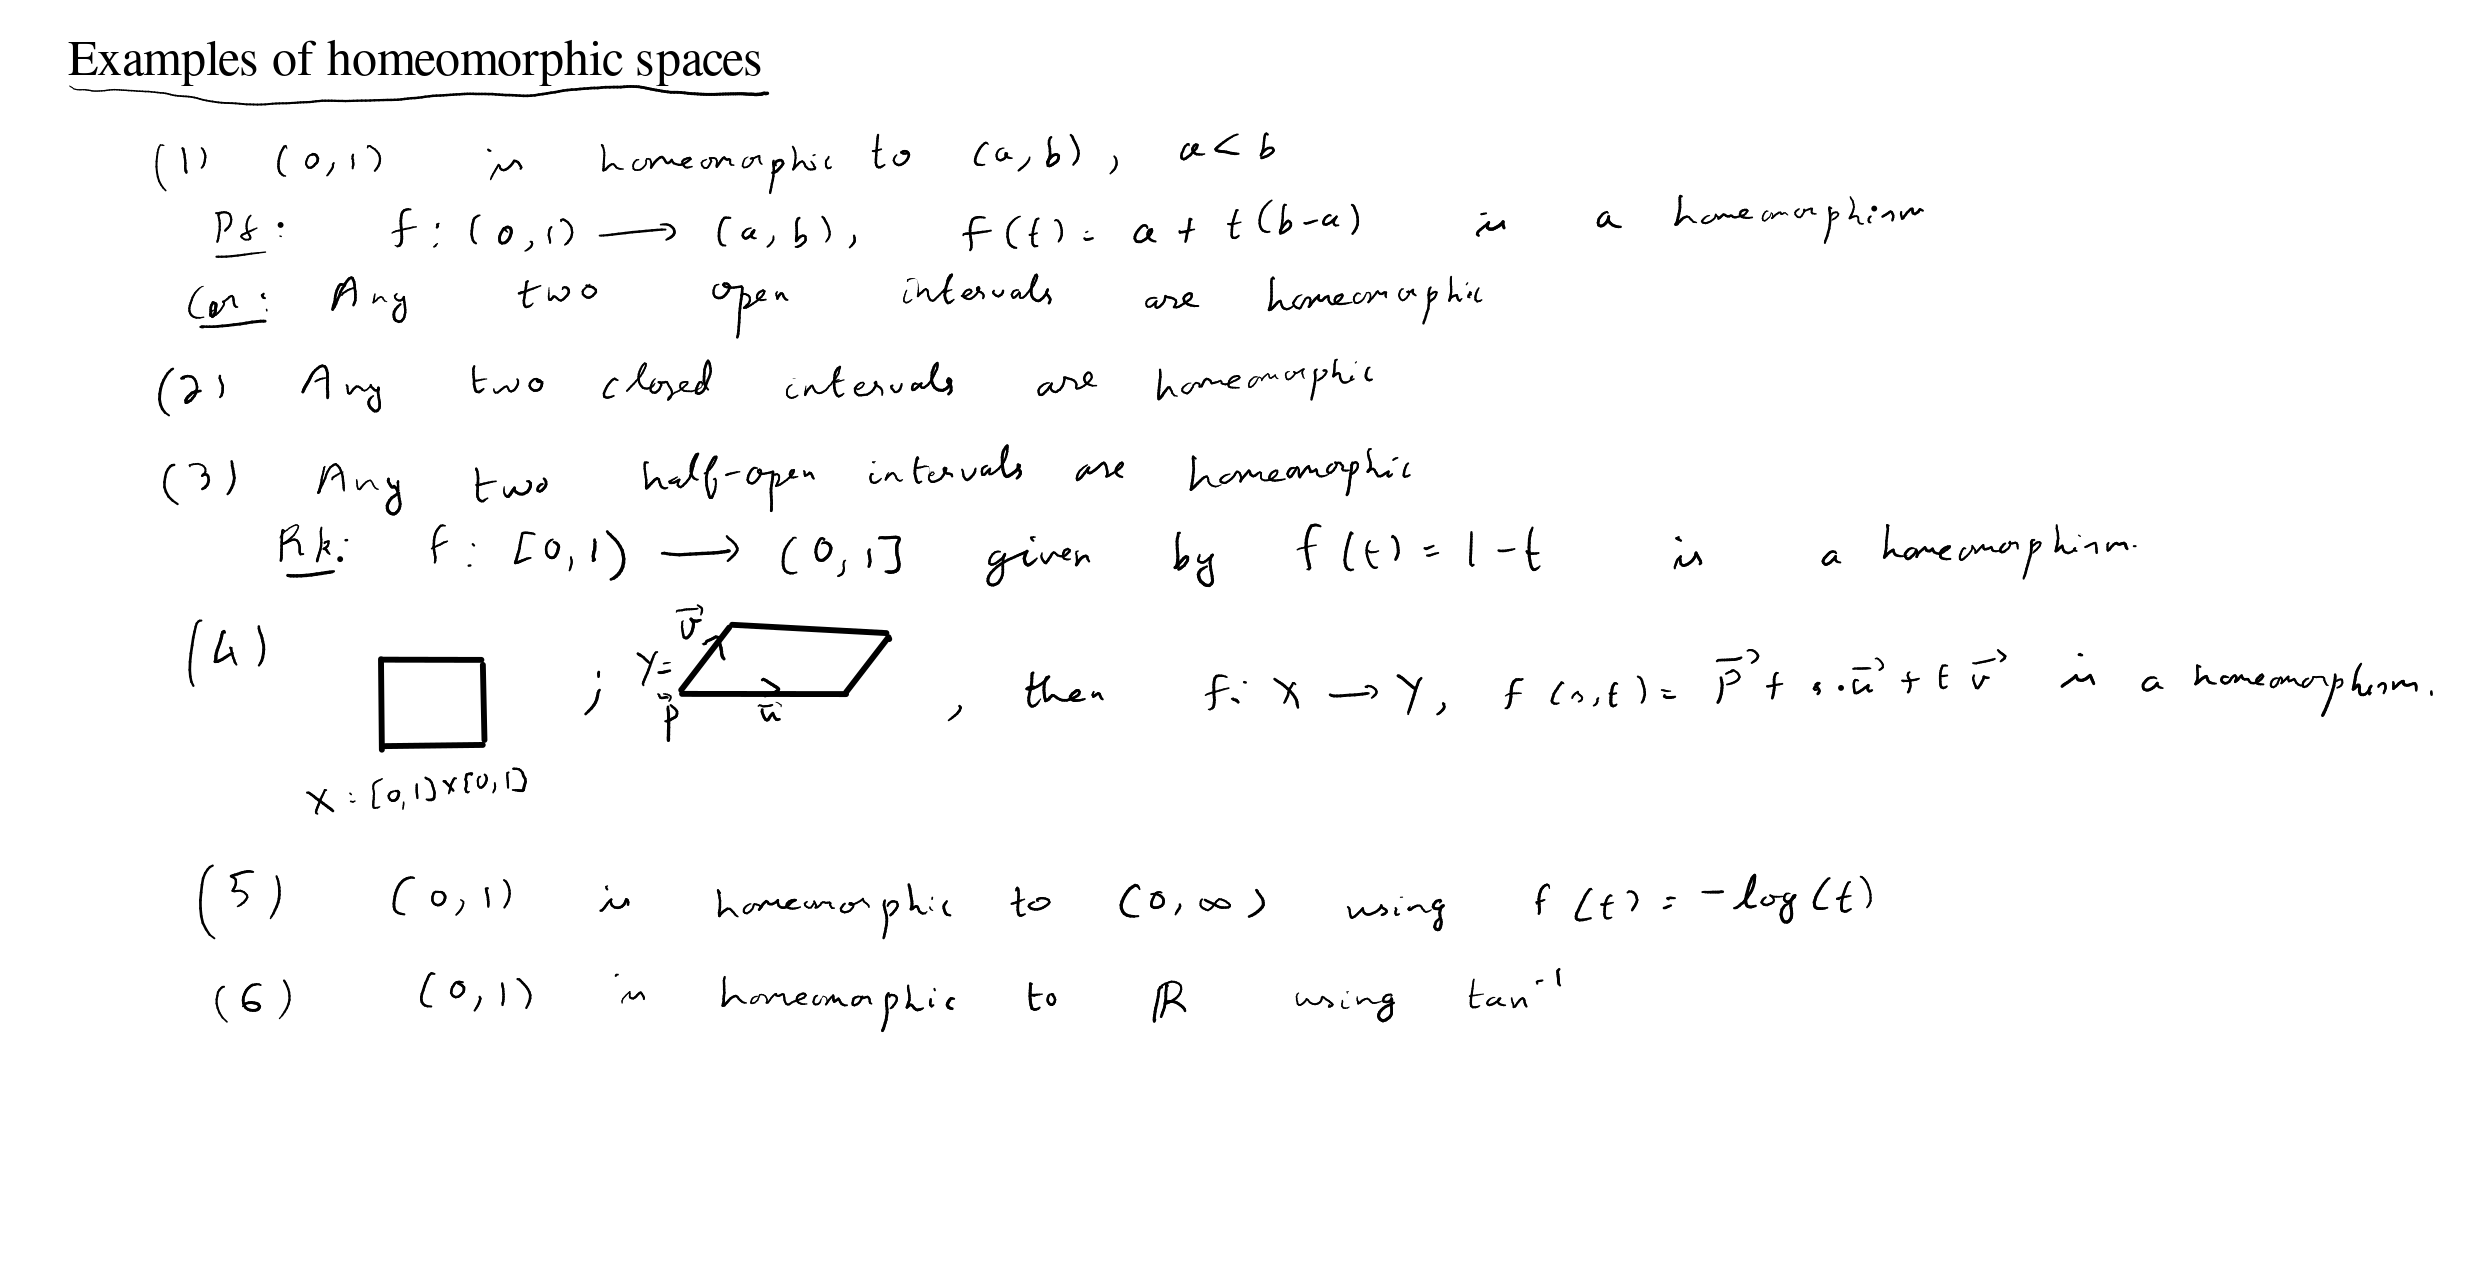 Examples of homeomorphic spaces
(1) (0,1) is homeomorphic to (a,b), a<b
Pf: f: (0,1) ⟶ (a,b), f(t) = a + t(b-a) is a homeomorphism
Cor: Any two open intervals are homeomorphic
(2) Any two closed intervals are homeomorphic
(3) Any two half-open intervals are homeomorphic
Rk: f: [0,1) ⟶ (0,1] given by f(t) = 1-t is a homeomorphism.
(4) ; Y= p⃗ u⃗ v⃗ , then f: X → Y, f(s,t) = p⃗ + s·u⃗ + t v⃗ is a homeomorphism.
X = [0,1]×[0,1]
(5) (0,1) is homeomorphic to (0,∞) using f(t) = -log(t)
(6) (0,1) is homeomorphic to ℝ using tan⁻¹